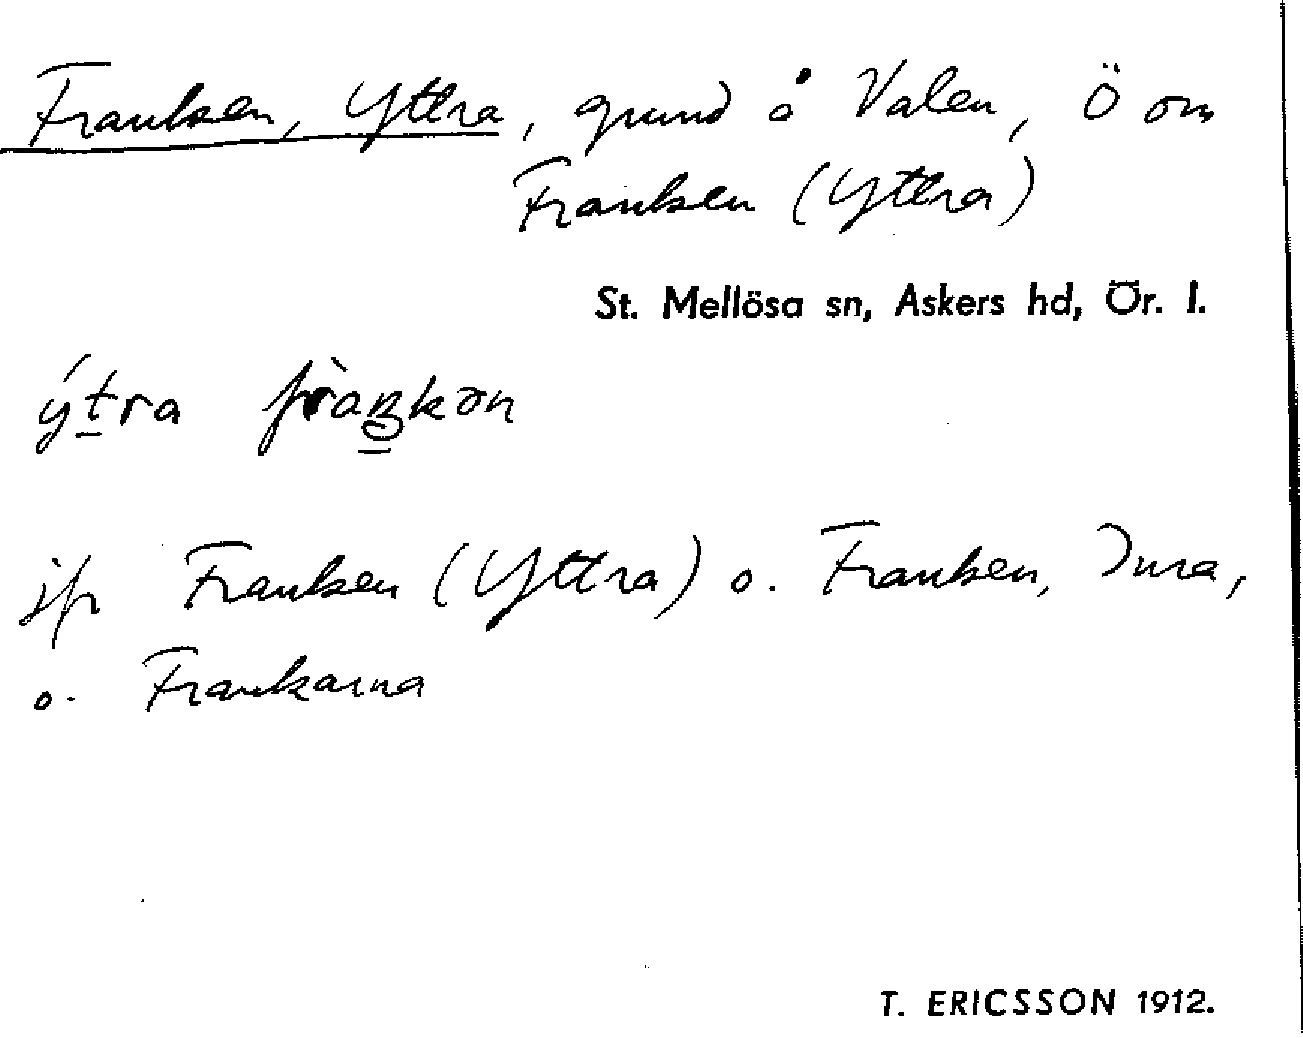 Franken, Yttra, grund å Valen, Ö om
Franken (Yttra)
St. Mellösa sn, Askers hd, Ör. l.
ýtra fràŋkən
jfr Franken (Yttra) o. Franken, Inra,
o. Frankarna
T. ERICSSON 1912.